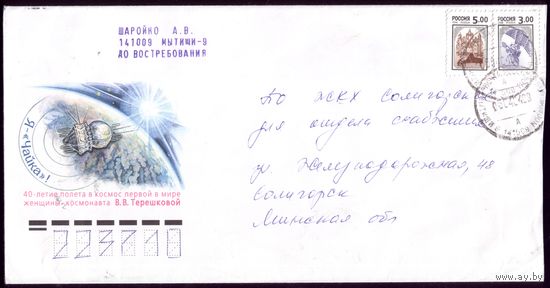 ШАРОЙКО А.В.
141009 МЫТИЩИ-9
ДО ВОСТРЕБОВАНИЯ
РОССИЯ 5.00
РОССИЯ 3.00
По ЖКХ Солигорска
для отдела снабжения
ул Железнодорожная, 48
Солигорск
Минская обл
Я-"Чайка"!
40-летие полета в космос первой в мире
женщины-космонавта В.В. Терешковой
223710
www.ay.by